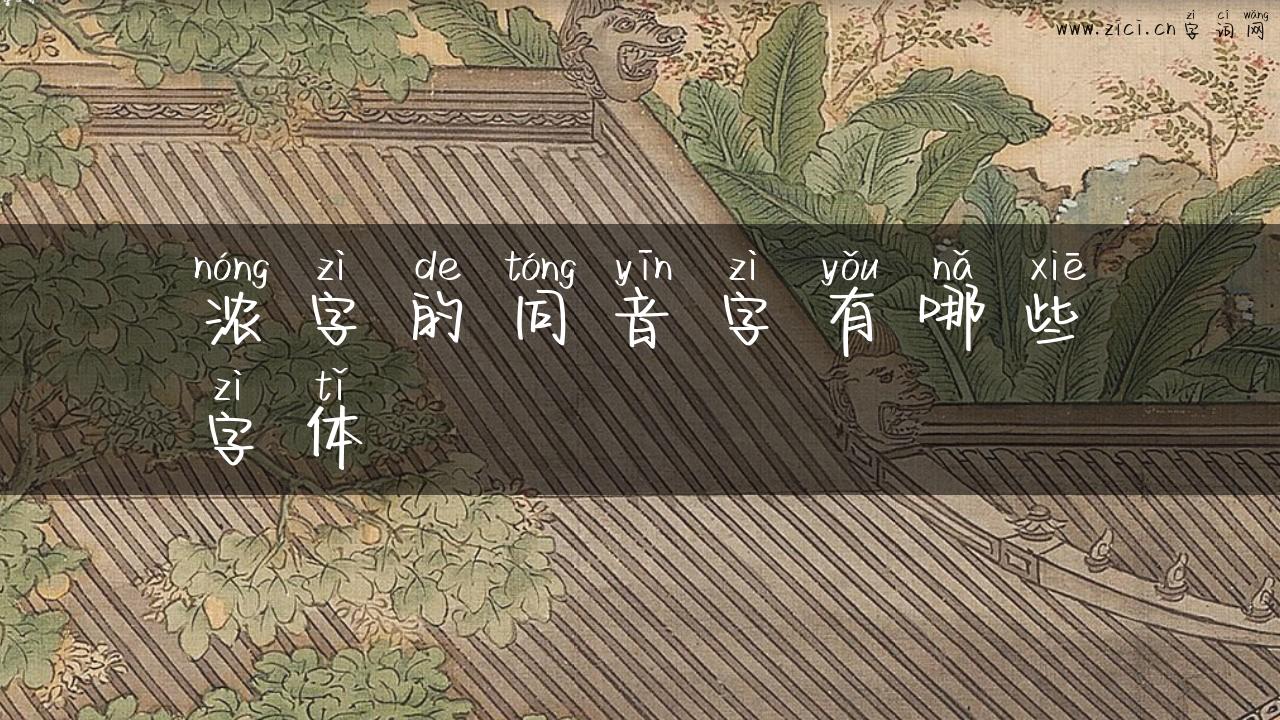 zì cí wǎng
www.zici.cn 字 词 网
nóng zì de tóng yīn zì yǒu nǎ xiē
浓 字 的 同 音 字 有 哪 些
zì tǐ
字 体